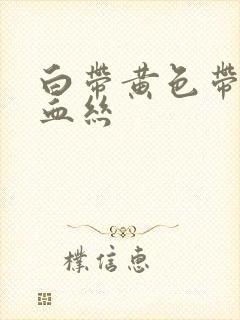 白帶黃色帶
血絲
樸信惠